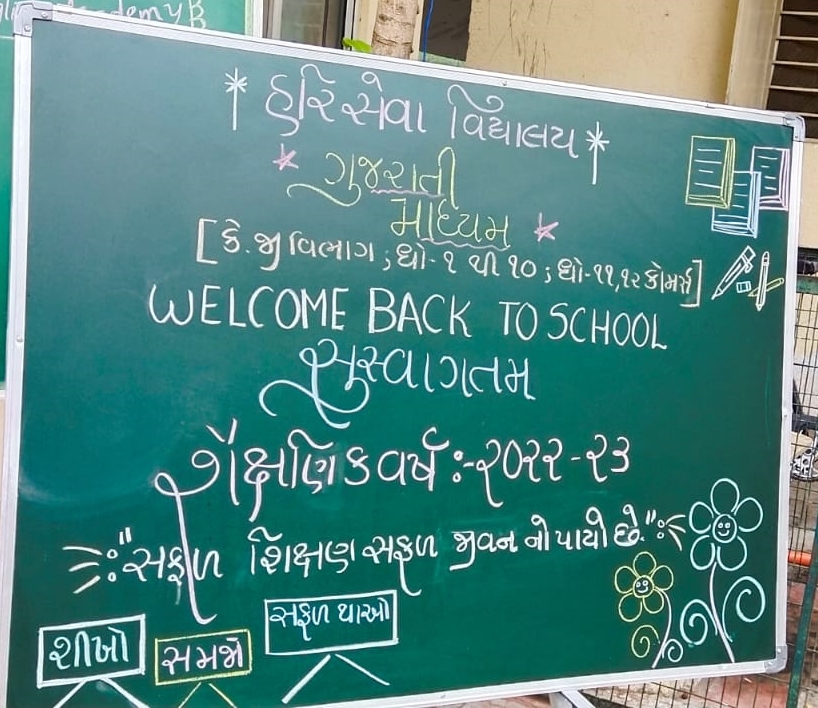 હરિસેવા વિદ્યાલય
ગુજરાતી
માધ્યમ
[કે.જી વિભાગ ; ધો-૧ થી ૧૦ ; ધો-૧૧,૧૨ કોમર્સ]
WELCOME BACK TO SCHOOL
સુસ્વાગતમ
શૈક્ષણિક વર્ષ :- ૨૦૨૨ - ૨૩
"સફળ શિક્ષણ સફળ જીવન નો પાયો છે."
શીખો
સમજો
સફળ થાઓ